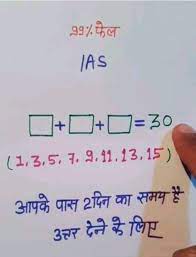 99%फेल
IAS
□+□+□=30
(1,3,5,7,9,11,13,15)
आपके पास 2दिन का समय है
उत्तर देने के लिए